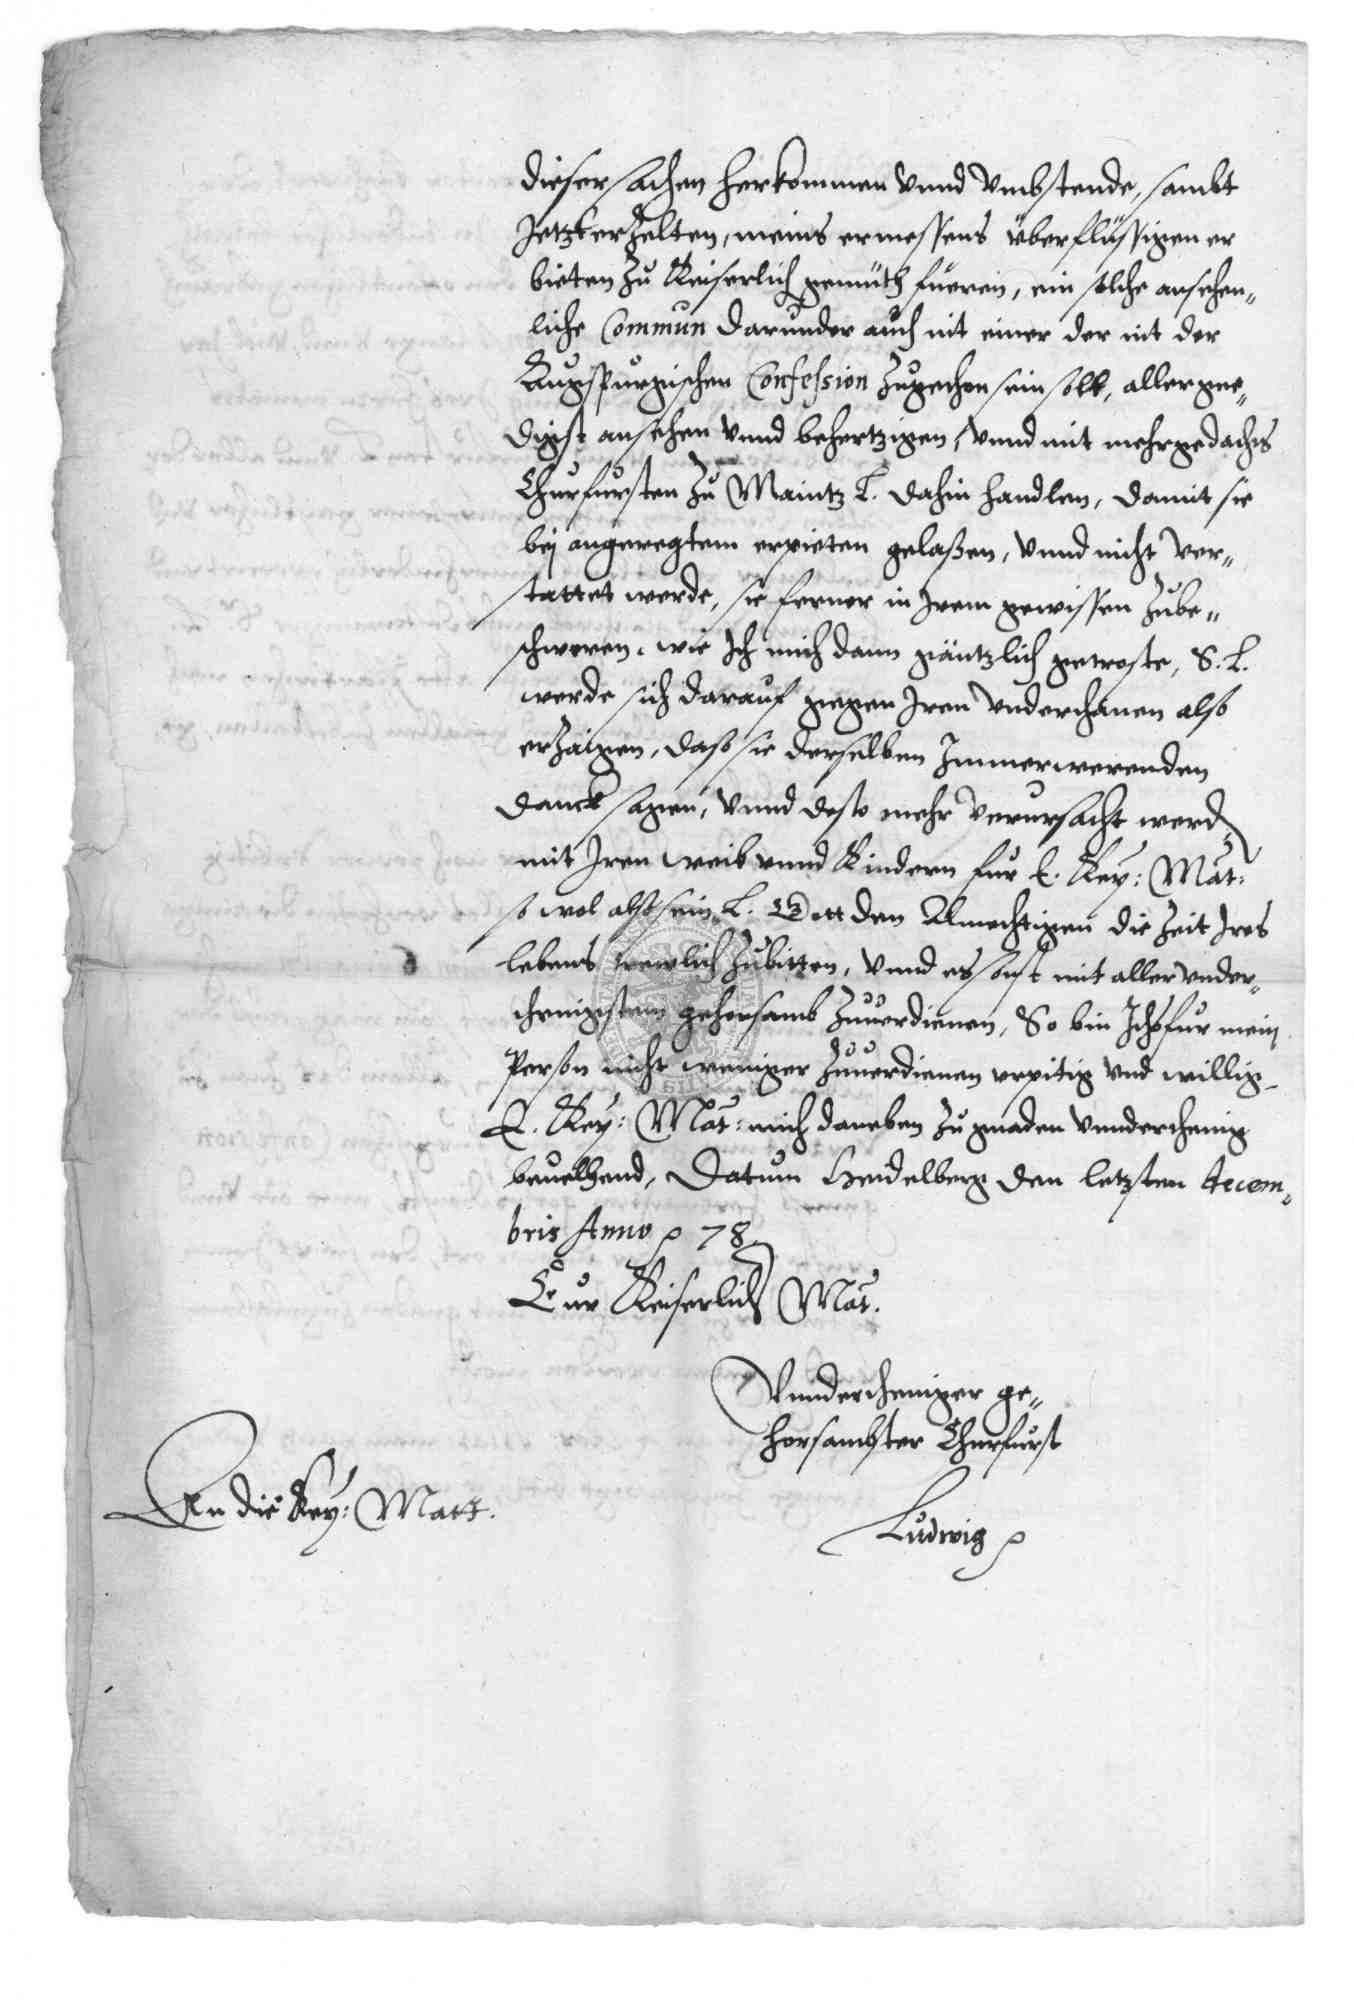 dieser sachen herkommen vnnd vmbstende, sambt
Jetzterzelten, meins ermessens überflüssigen er
bieten zu Keiserlich gemüth fueren, ein solche ansehen„
liche Commun darunder auch nit einer der nit der
Augspurgischen Confession zugethon sein soll, allergne„
digst ansehen vnnd behertzigen, vnnd mit mehrgedachts
Churfursten zu Maintz L. dahin handlen, damit sie
bej angeregtem erpieten gelaßen, vnnd nicht ver„
stattet werde, sie ferner in Irem gewissen zube„
schweren, wie Ich mich dann gäntzlich getroste, S. L.
werde sich darauf gegen Iren vnderthanen also
erzaigen, daß sie derselben Immerwerenden
danckh sagen, vnnd desto mehr verursacht werden
mit Iren weib vnnd Kindern fur E. Key: Mat:
so wol alß sein L. Gott den Almechtigen die Zeit Ires
lebens trewlich zubitten, vnnd es sonst mit aller vnder„
thenigstem gehorsamb zuuerdienen, So bin Ichs fur mein
Person nicht weniger zuuerdienen urpitig vnd willig,
E. Key: Mat: mich daneben zu gnaden vnnderthenig
beuelhend, Datum Heidelberg den letzten decem„
bris Anno p 78.
Eur Keiserlich Mat.
Vnndertheniger ge„
horsambster Churfurst
Ludwig p
An die Key: Matt.